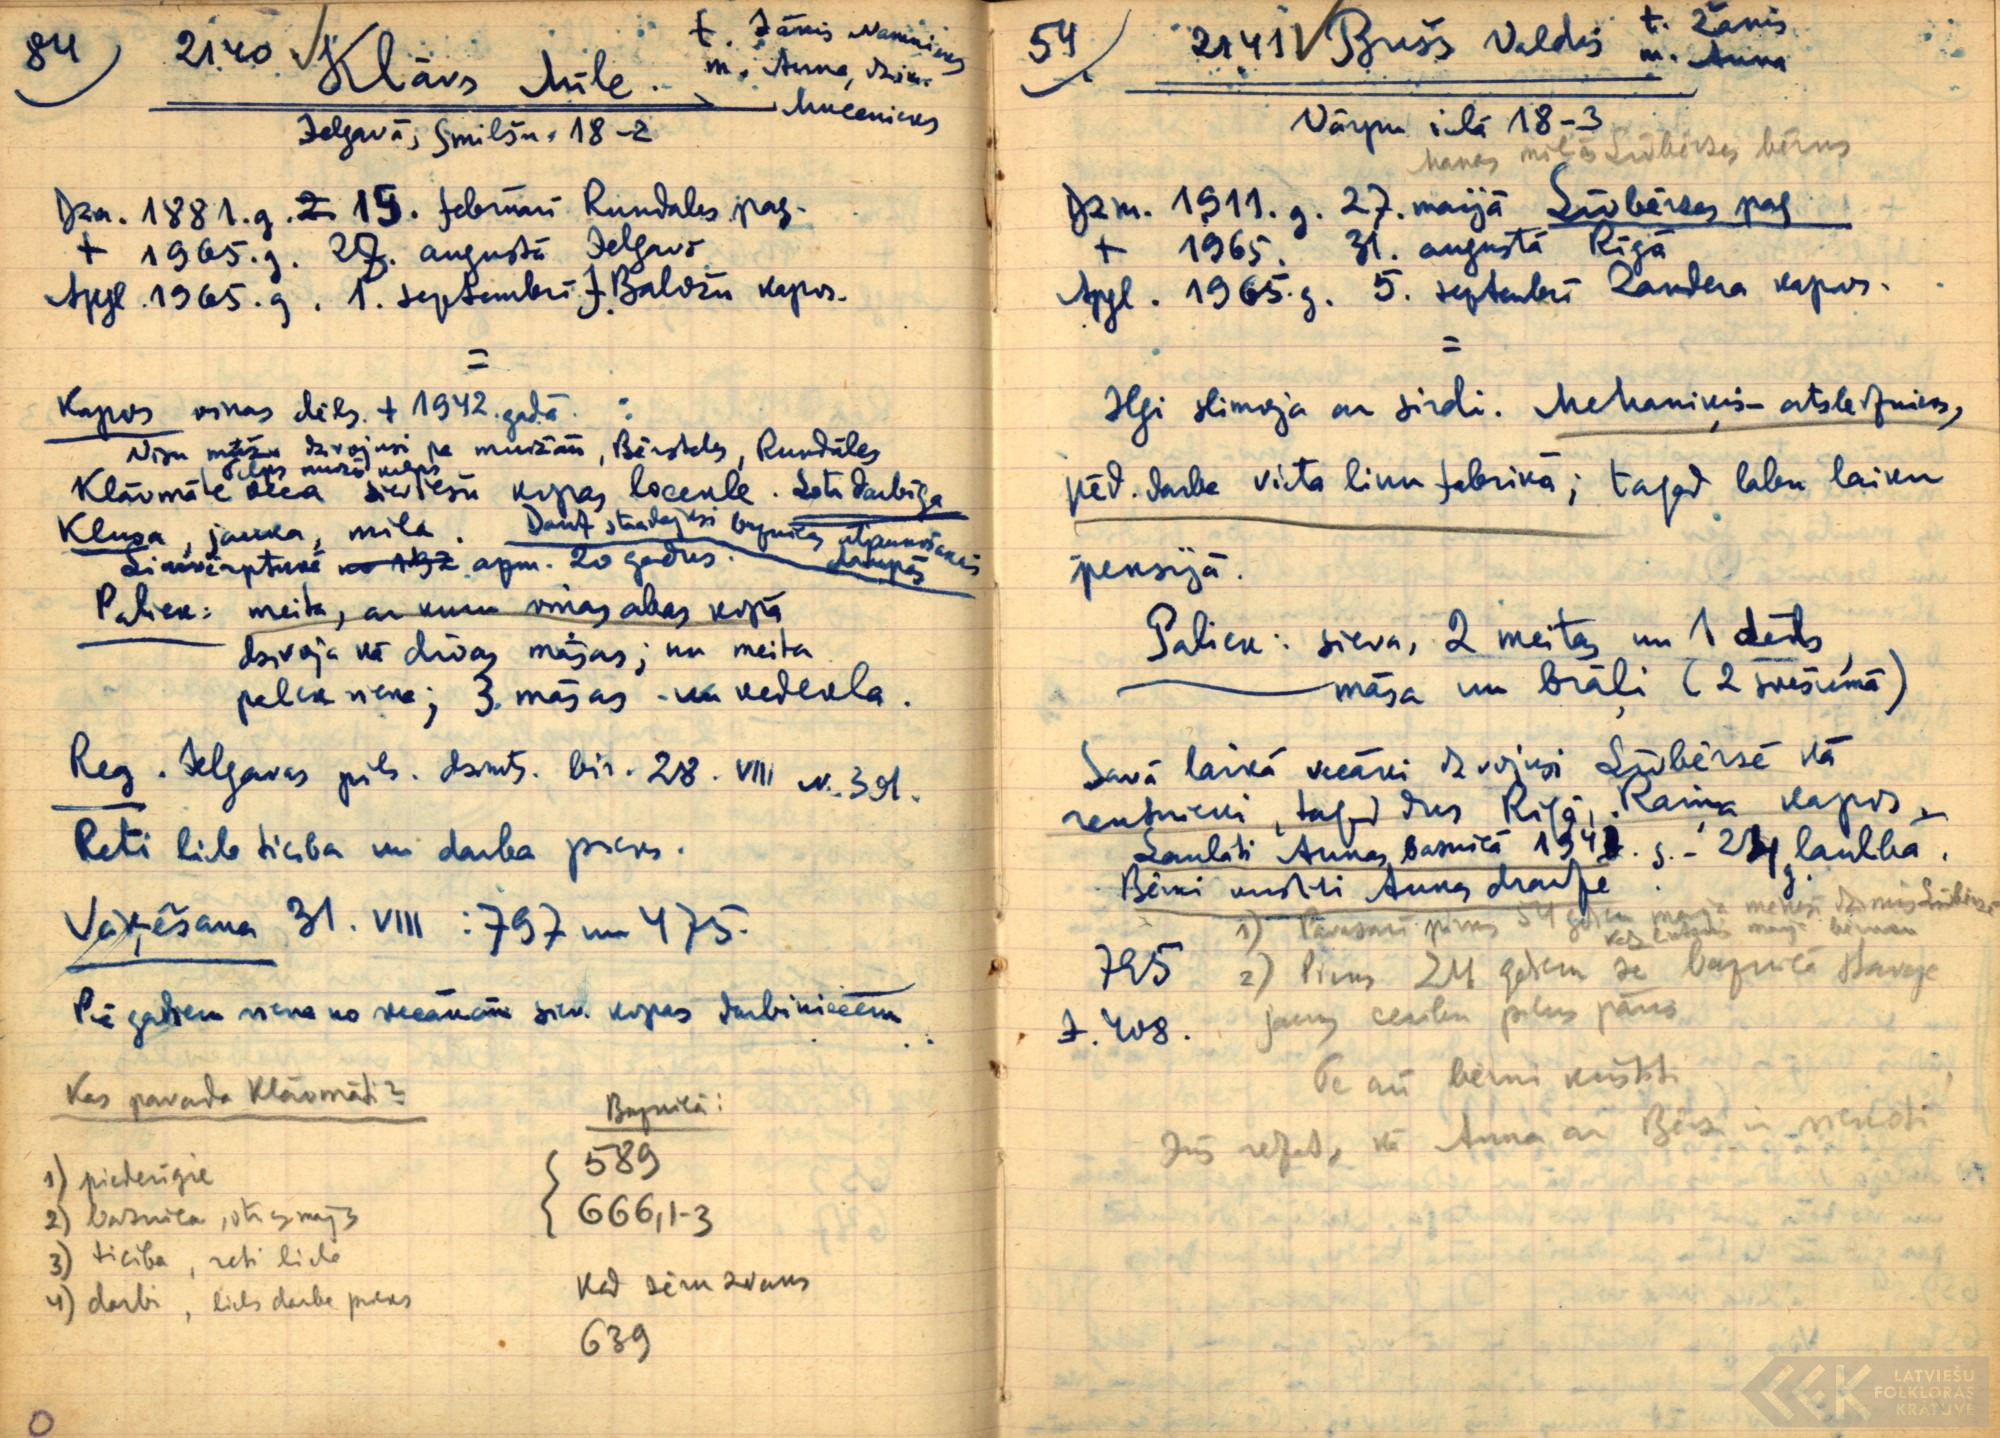 84) 2140 Klāvs Mīle.
t. Jānis Namnieks
m. Anna, dzim.
Mucenieks
Jelgavā, Smilšu 18-2
Dzm. 1881. g. 15. februārī Rundāles pag.
+ 1965. g. 27. augustā Jelgavā
Apgl. 1965. g. 1. septembrī J. Baložu kapos.
=
Kapos viņas dēls + 1942. gadā.
Visu mūžu dzīvojusi pa muižām, Bērsteles, Rundāles
Klāvmāte veca sieviešu kopas locekle. Ļoti darbīga
Klusa, jauka, mīļa.
Daudz strādājusi baznīcas
Linvērptuvē apm. 20 gadus.
Paliek: meita, ar kuru viņas abas kopā
dzīvoja kā divas māsas; nu meita
paliek viena; 3 māsas
Reg. Jelgavas pils. dzmts. bir. 28. VIII N. 391.
Reti liela ticība un darba prieks.
Vāķēšana 31. VIII : 797 un 475.
Pēc gadiem viena no vecākām siev. kopas darbiniecēm
Kas pavada Klāvmāti?
1) piederīgie
2) baznīca, otras mājas
3) ticība, reti liela
4) darbi, liels darba prieks
Baznīcā:
589
666,1-3
Kad sēru zvans
639
54) 2141 Bušs Valdis
t. Žanis
m. Anna
Vārpu ielā 18-3
Manas mīļās Līvbērzes bērns
Dzm. 1911. g. 27. maijā Līvbērzes pag.
+ 1965. 31. augustā Rīgā
Apgl. 1965. g. 5. septembrī Zandera kapos.
=
Ilgi slimoja ar sirdi. Mehāniķis-atslēdznieks,
pēd. darba vieta linu fabrikā; tagad labu laiku
pensijā.
Paliek: sieva, 2 meitas un 1 dēls,
māsa un brāļi (2 svešumā)
Savā laikā vecāki dzīvojusi Līvbērzē kā
rentnieki, tagad dus Rīgā, Raiņa kapos.
Laulāti Annas baznīcā 1941. g. - 24 g. laulībā.
Bērni kristīti Annas draudzē.
795
J. 408.
1) Pavasarī pirms 54 gadiem maija mēnesī dzimis Līvbērzē
2) Pirms 24 gadiem še baznīcā stāvēja
jauns cerību pilns pāris
Te arī bērni kristīti
Jūs redzat, kā Anna ar Bērzi ir vienoti
LATVIEŠU
FOLKLORAS
KRĀTUVE